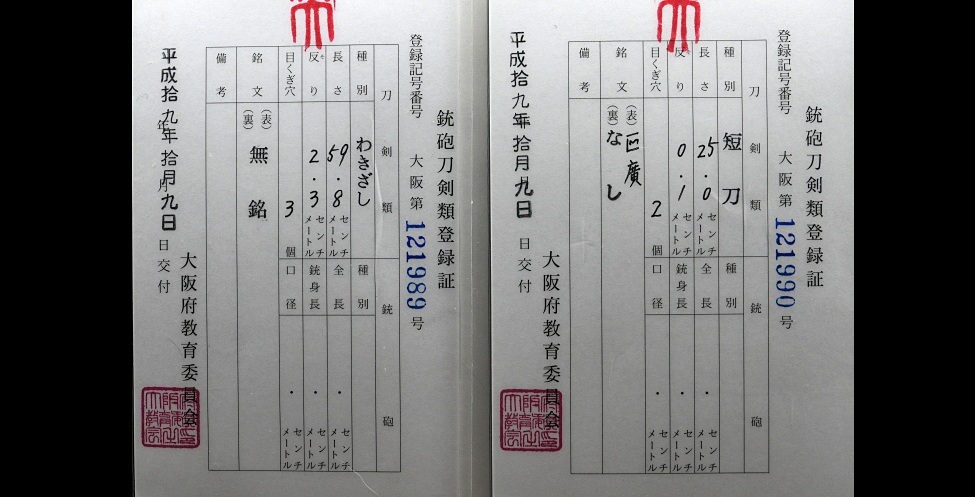 銃砲刀剣類登録証
登録記号番号 大阪第 121989 号
刀剣類 銃砲
種別 わきざし 種別
長さ 59.8 センチメートル 全長 ・ センチメートル
反り 2.3 センチメートル 銃身長 ・ センチメートル
目くぎ穴 3 個 口径 ・ センチメートル
銘文 (表) 無銘
(裏)
備考
平成拾九年拾月九日
年 月 日交付
大阪府教育委員会
銃砲刀剣類登録証
登録記号番号 大阪第 121990 号
刀剣類 銃砲
種別 短刀 種別
長さ 25.0 センチメートル 全長 ・ センチメートル
反り 0.1 センチメートル 銃身長 ・ センチメートル
目くぎ穴 2 個 口径 ・ センチメートル
銘文 (表) 廣
(裏) なし
備考
平成拾九年拾月九日
日交付
大阪府教育委員会